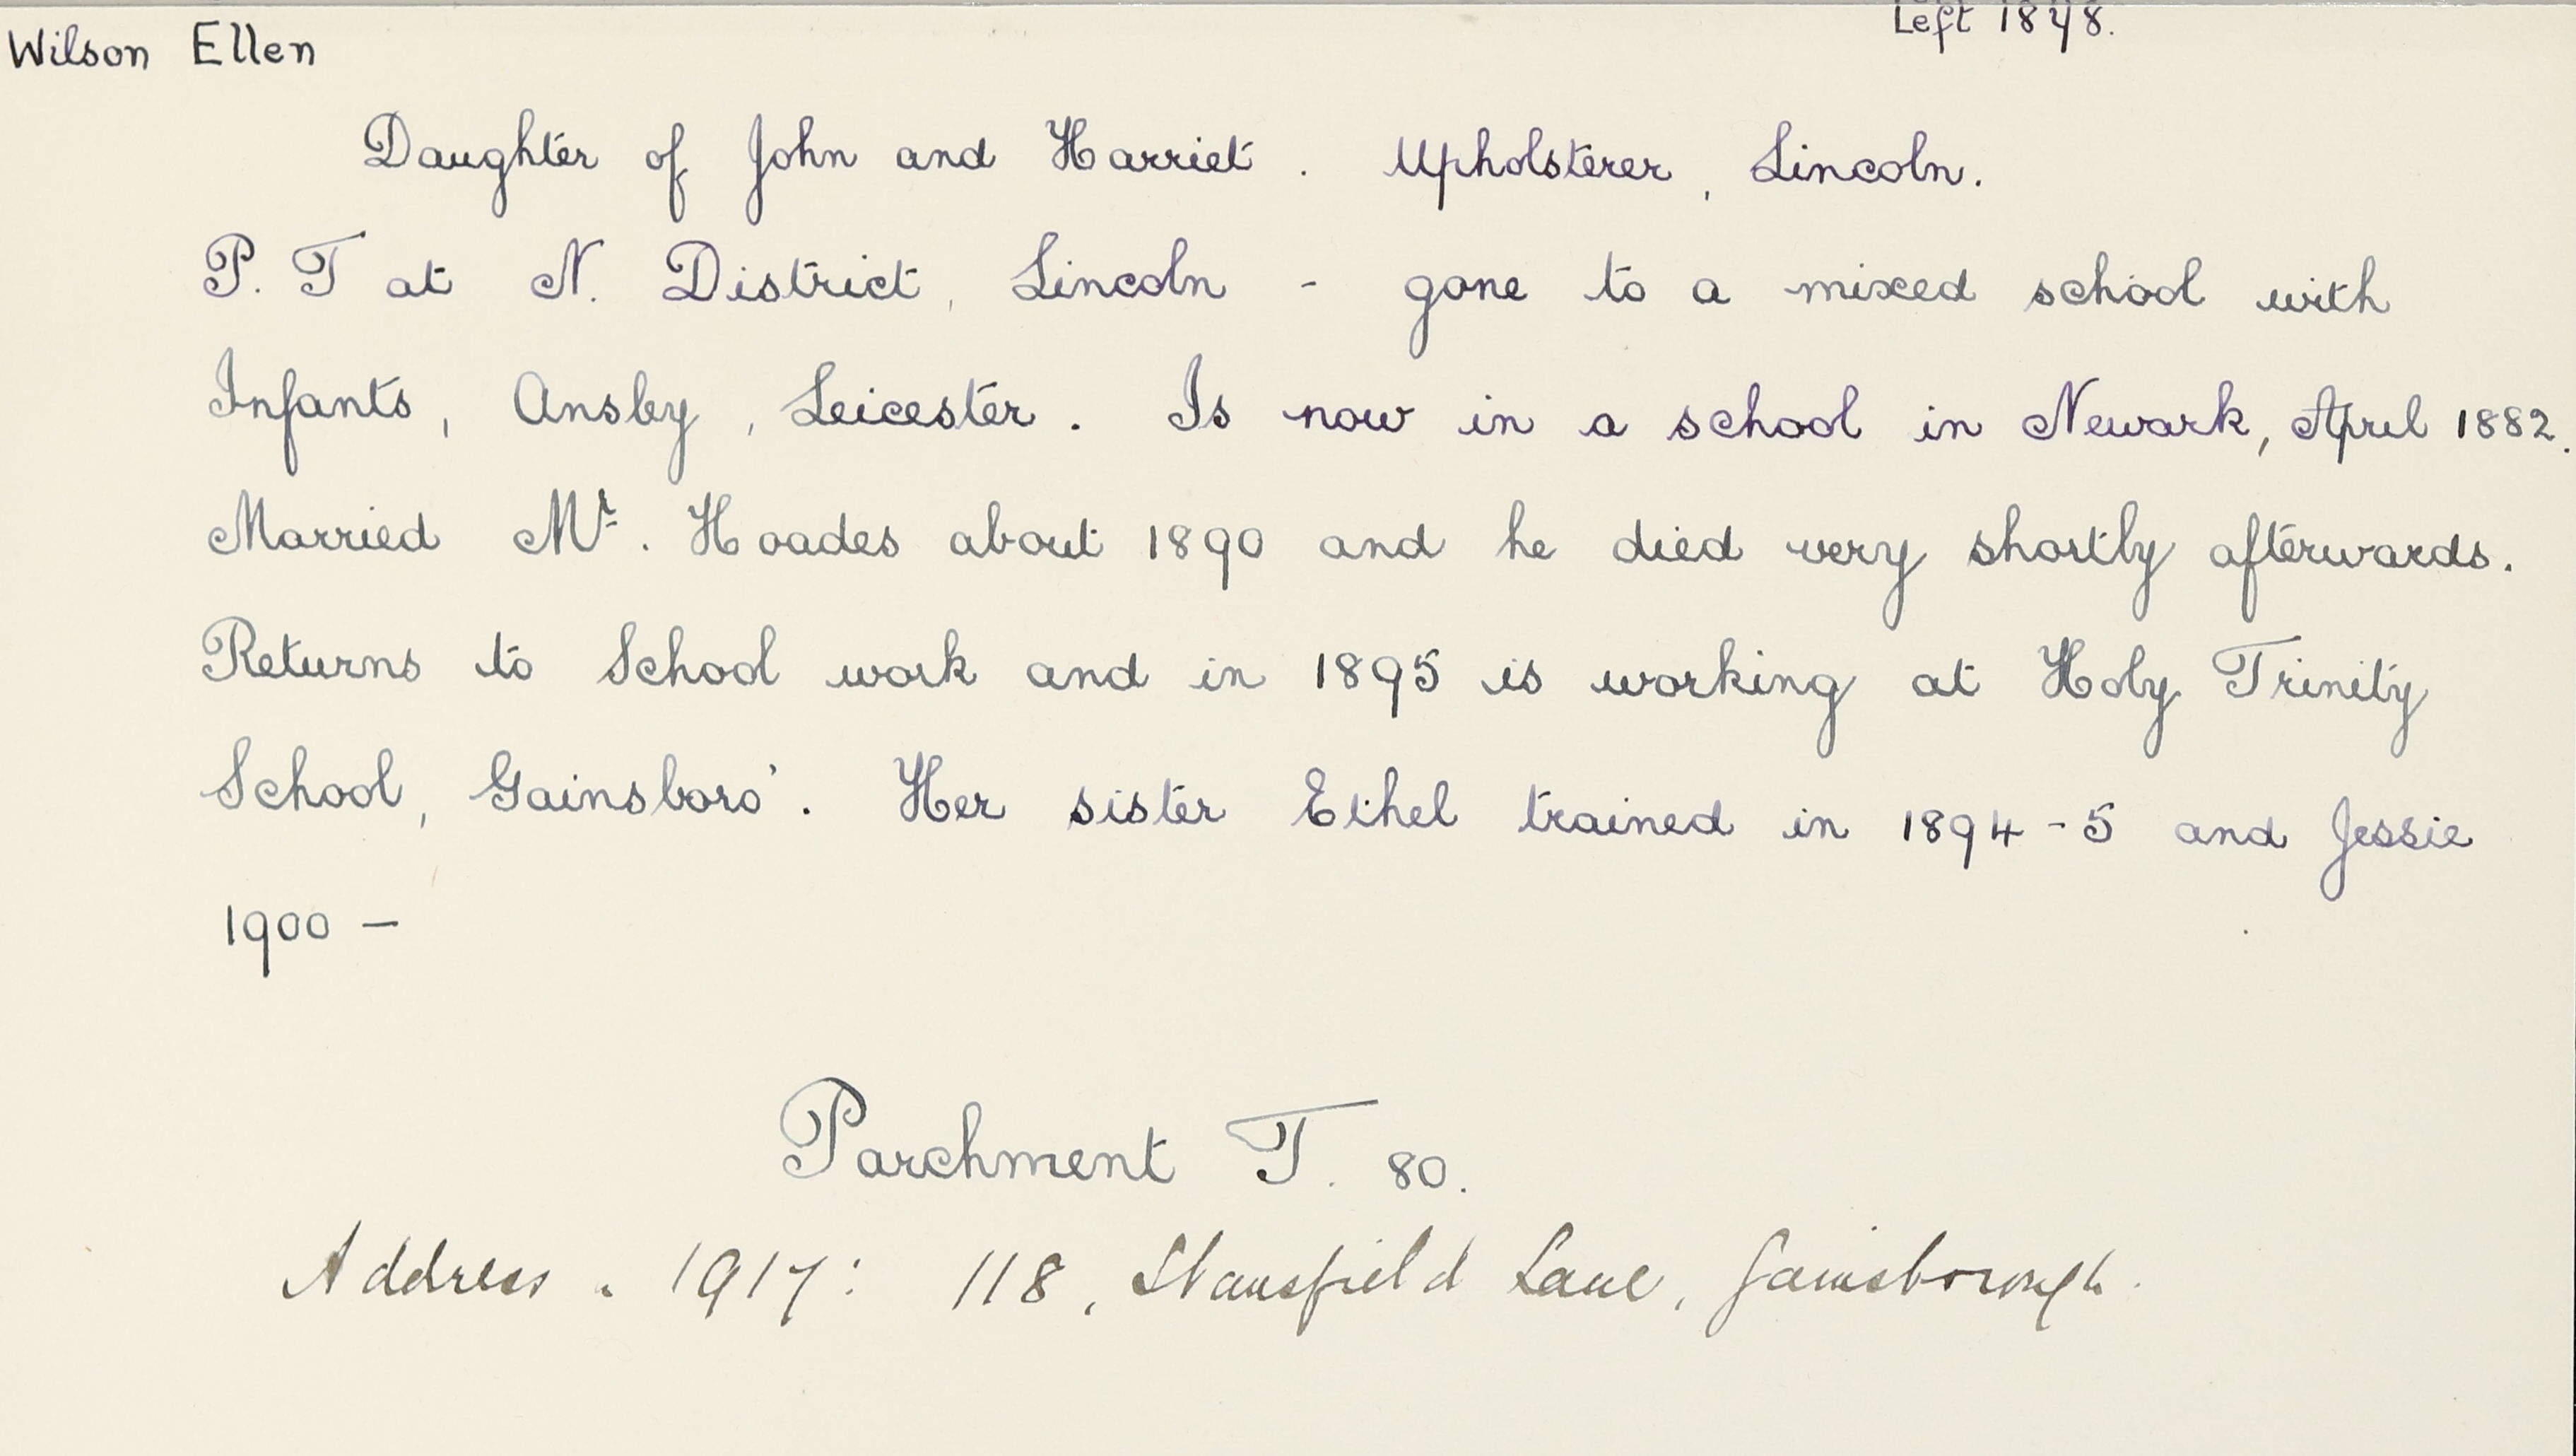 Left 1878.
Wilson Ellen
Daughter of John and Harriet. Upholsterer, Lincoln.
P. T at N. District, Lincoln - gone to a mixed school with
Infants, Ansby, Leicester. Is now in a school in Newark, April 1882.
Married Mr. Hoades about 1890 and he died very shortly afterwards.
Returns to School work and in 1895 is working at Holy Trinity
School, Gainsboro'. Her sister Ethel trained in 1894-5 and Jessie
1900 —
Parchment T. 80.
Address. 1917: 118, Lane, Gainsborough.